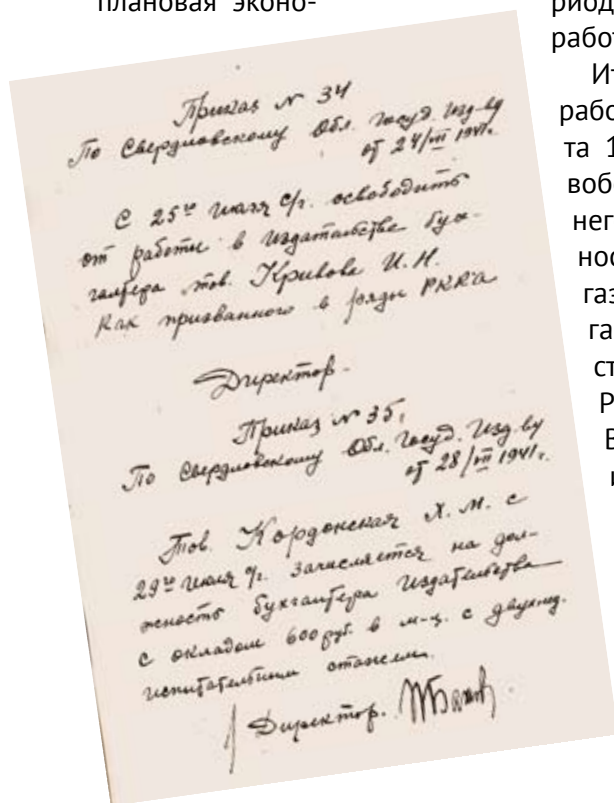 плановая эконо-
Приказ № 34
По Свердловскому Обл. Госуд. Изд-ву
от 24/VII 1941г.
С 25го июля с/г. освободить
от работы в издательстве бух-
галтера тов. Кривова И. Н.
как призванного в ряды РККА
Директор.
Приказ № 35,
По Свердловскому Обл. Госуд. Изд-ву
от 28/VII 1941г.
Тов. Кордонская Х. М. с
29го июля с/г. зачисляется на дол-
жность бухгалтера издательства
с окладом 600 руб. в м-ц. с двухнед.
испытательным стажем.
Директор.
риод
работ
Ит
рабо
та 1
вобо
него
нос
газ
га
ст
Р
В